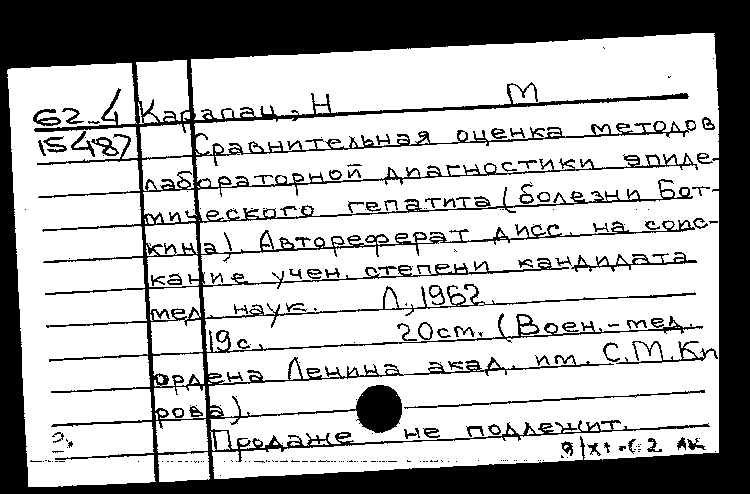 62-4 Карапац, Н М
15487 Сравнительная оценка методов
лабораторной диагностики эпиде-
мического гепатита (болезни Бот-
кина). Автореферат дисс. на соис-
кание учен. степени кандидата
мед. наук. Л., 1962.
19с. 20см. (Воен.-мед.
ордена Ленина акад. им. С.М.Ки
рова).
Продаже не подлежит.